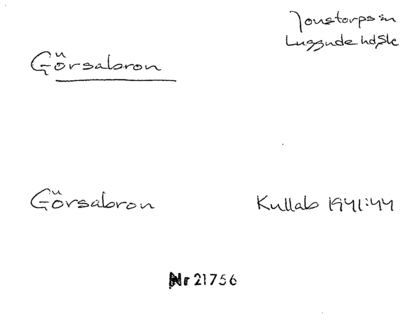 Jonstorps sn
Luggude hd, Sk
Görsabron
Görsabron Kullab 1941:44
Nr 21756